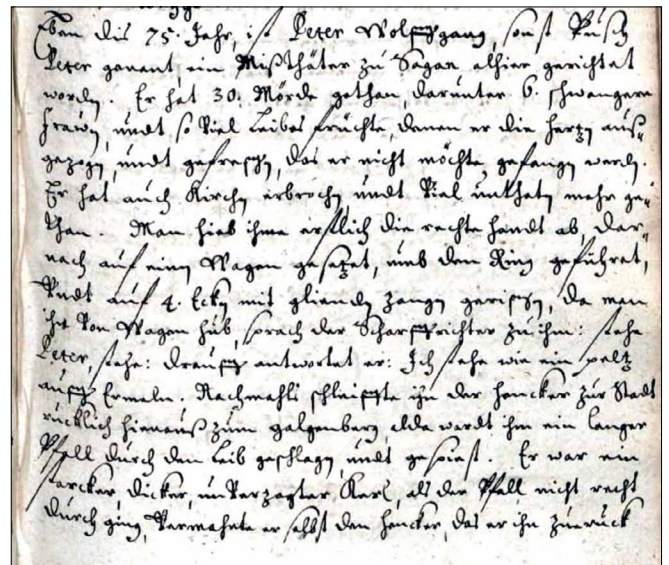 Eben dis 75. Jahr, ist Peter Wolffgang, sonst Pusch
Peter genant, ein Mißthäter zu Sagan alhier gerichtet
worden. Er hat 30. Mörde gethan, darunter 6. schwangere
frawen, undt so viel Leibes früchte, denen er die hertzen auß-
gezogen, undt gefressen, das er nicht möchte gefangen werden.
Er hat auch Kirchen erbrochen undt viel unthaten mehr ge-
than. Man hieb ihme erstlich die rechte handt ab, dar-
nach auf einen Wagen gesetzet, umb den Ring geführet,
Undt auf 4. Ecken mit glienden zangen gerissen, da man
ihn von Wagen hub, sprach der Scharffrichter zu ihm: stehe
Peter, stehe: drauff antwortet er: Ich stehe wie ein peltz
auff Ermeln. Nachmahls schleiffte ihn der hencker zur Stadt
rücklich hinauß zum galgenberg, alda wardt ihm ein langer
Pfall durch den Leib geschlagen, undt gespiest. Er war ein
starcker, dicker, unverzagter, Kerl, als der Pfall nicht recht
durch ging, vermahnete er selbst den hencker, das er ihn zurück